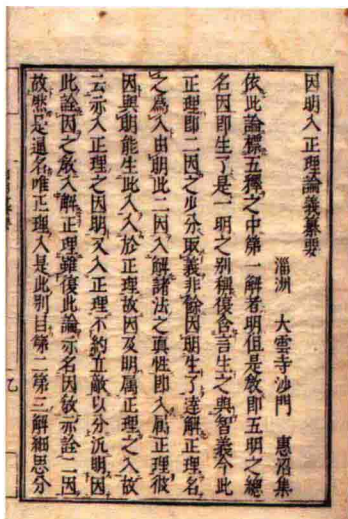 因明入正理論義纂要
淄洲 大雲寺沙門 惠沼集
依此論標五釋之中第一解者明但是教即五明之總
名因即生了是一明之別稱復含言生之與智義今此
正理即二因之少分取義非餘因明生了達解正理名
之為入由明此二因入解諸法之真性即入屬正理彼
因與明能生此入入於正理故因及明屬正理之入故
云亦入正理之因明又入正理不約立敵以分沉明因
此詮因之教入解正理雖復此論亦名因教亦詮二因
故然是通名唯正理入是此別目第二第三解細思分